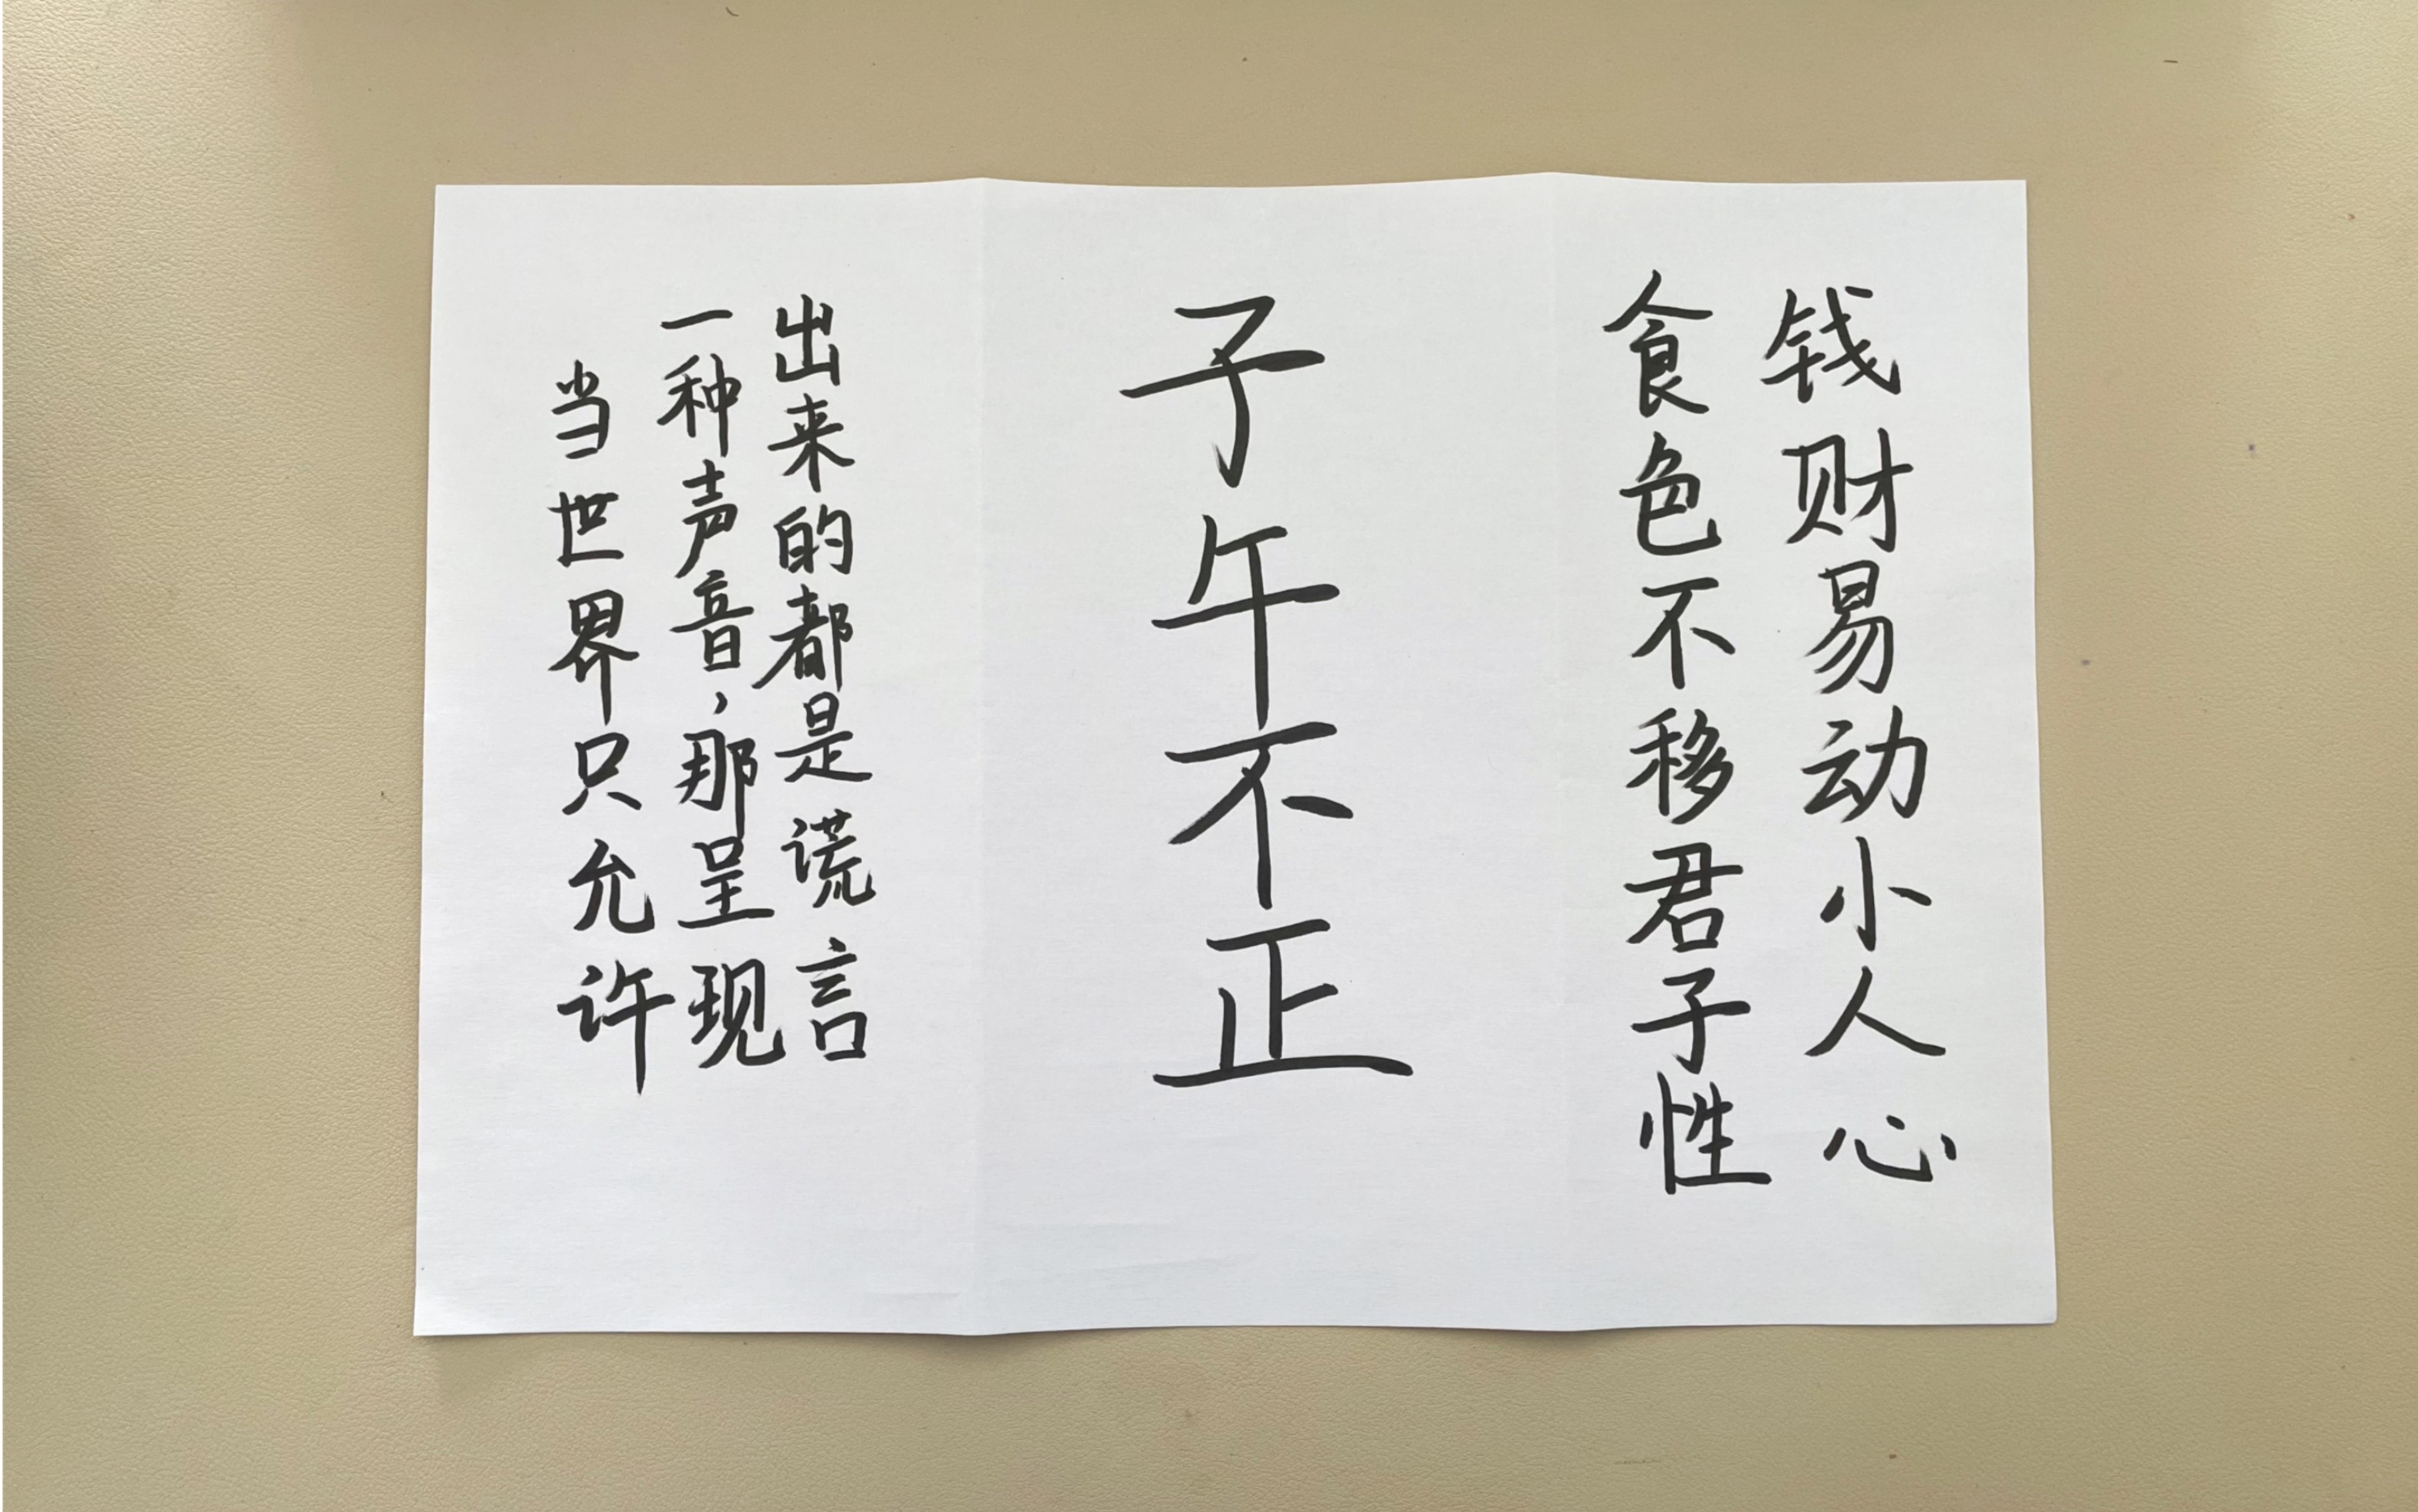 钱财易动小人心
食色不移君子性
子午不正
当世界只允许
一种声音，那呈现
出来的都是谎言